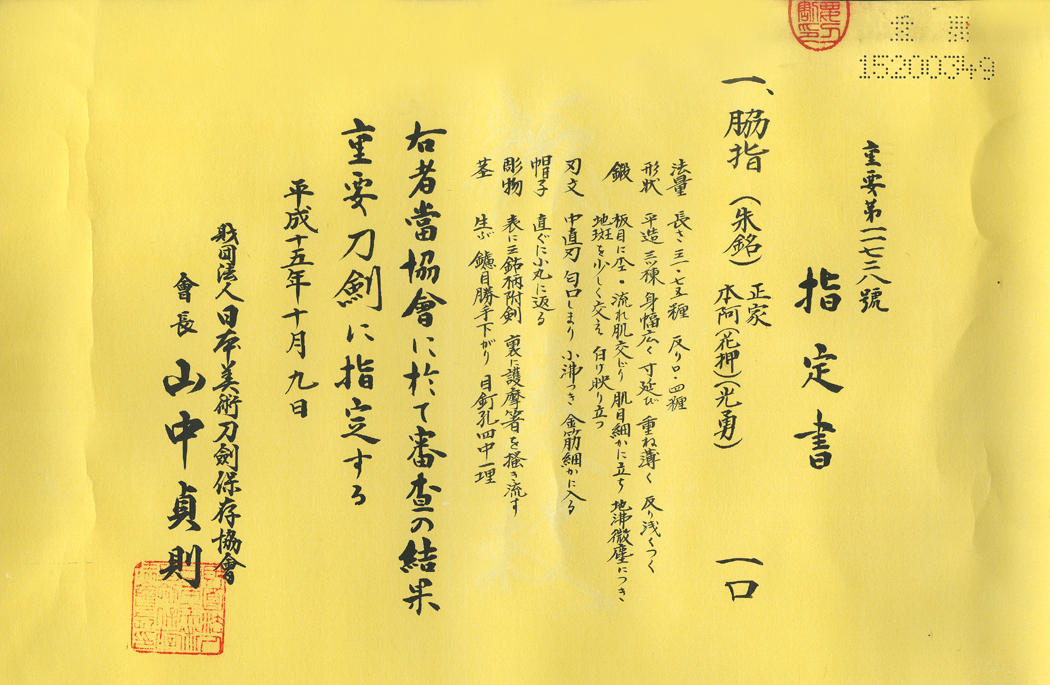 15200349
重要第一一七二八號
指定書
一、脇指 (朱銘) 正家 一口
本阿(花押)(光勇)
法量 長さ三一・七五糎 反り〇・四糎
形状 平造 三ツ棟 身幅広く 寸延び 重ね薄く 反り浅くつく
鍛 板目に杢・流れ肌交じり 肌目細かに立ち 地沸微塵につき
地斑を少しく交え 白け映り立つ
刃文 中直刃 匂口しまり 小沸つき 金筋細かに入る
帽子 直ぐに小丸に返る
彫物 表に三鈷柄附剣 裏に護摩箸を掻き流す
茎 生ぶ 鑢目勝手下がり 目釘孔四中一埋
右者當協會に於て審査の結果
重要刀劍に指定する
平成十五年十月九日
財団法人日本美術刀劍保存協會
會長 山中貞則